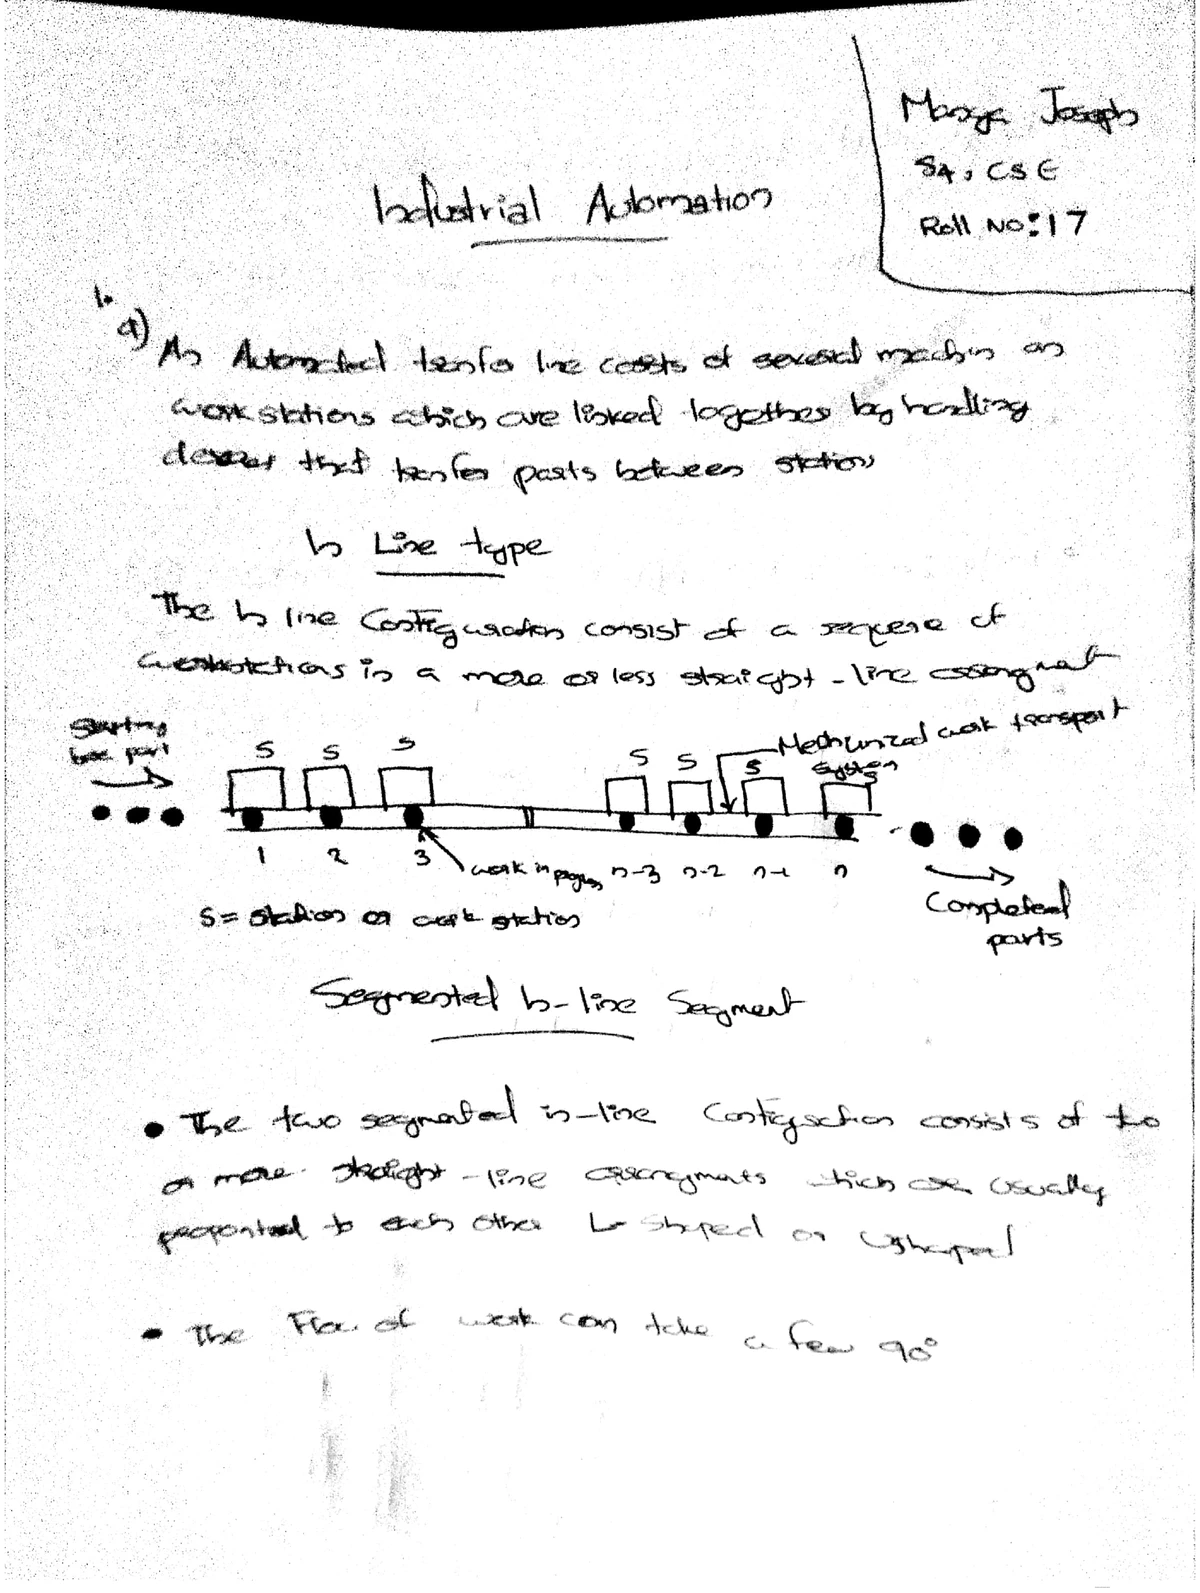 Joseph
S4, CSE
Roll No: 17
Industrial Automation
1.
a) An Automated transfer line consists of several machin on
work stations which are linked together by handling
that transfer parts between stations
In Line type
The In line Configuration consist of a of
workstations in a more or less straight-line
Starting
base part
S S S S S S S
Mechanized work transport
system
1 2 3 work in progress n-3 n-2 n-1 n
S = station or work station
Completed
parts
Segmented In-line Segment
• The two segmented in-line Configuration consists of two
or more straight-line arrangments which are usually
to each other L shaped or U shaped
• The Flow of work can take a few 90°